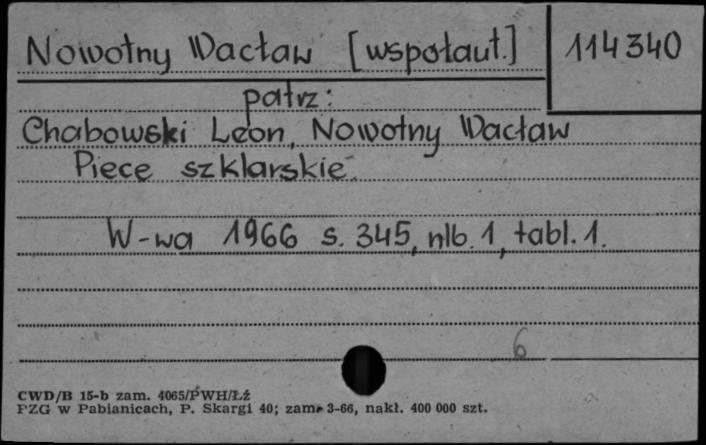 Nowotny Wacław [wspołaut.]
114340
patrz:
Chabowski Leon, Nowotny Wacław
Piece szklarskie.
W-wa 1966 s. 345, nlb. 1, tabl. 1.
6
CWD/B 15-b zam. 4065/PWH/Łź
PZG w Pabianicach, P. Skargi 40; zam. 3-66, nakł. 400 000 szt.